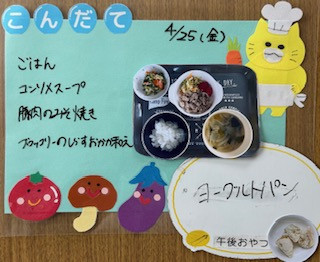 こんだて
4/25(金)
ごはん
コンソメスープ
豚肉のみそ焼き
ブロッコリーのじゃこおかか和え
ヨーグルトパン
午後おやつ